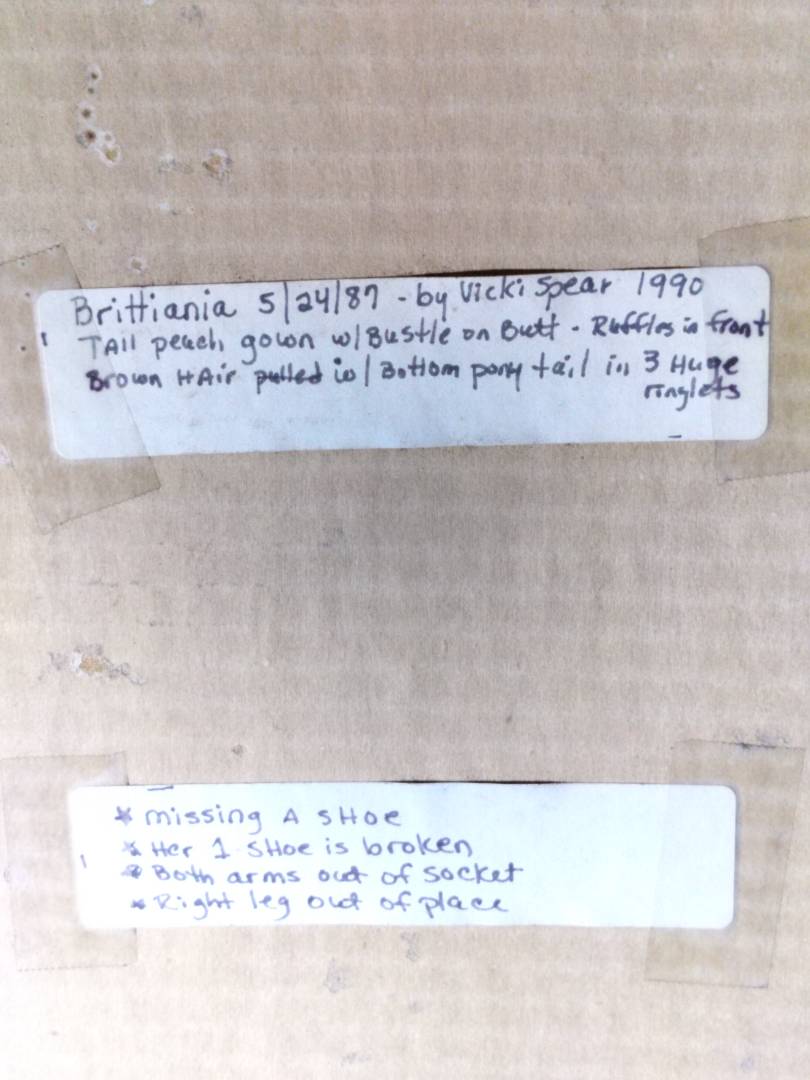 Brittiania 5/24/87 - by Vicki Spear 1990
TAll peach gown w/ Bustle on Butt - Ruffles in front
Brown HAir pulled w/ Bottom pony tail in 3 Huge
ringlets
* missing A SHoe
* Her 1 SHoe is broken
* Both arms out of socket
* Right leg out of place